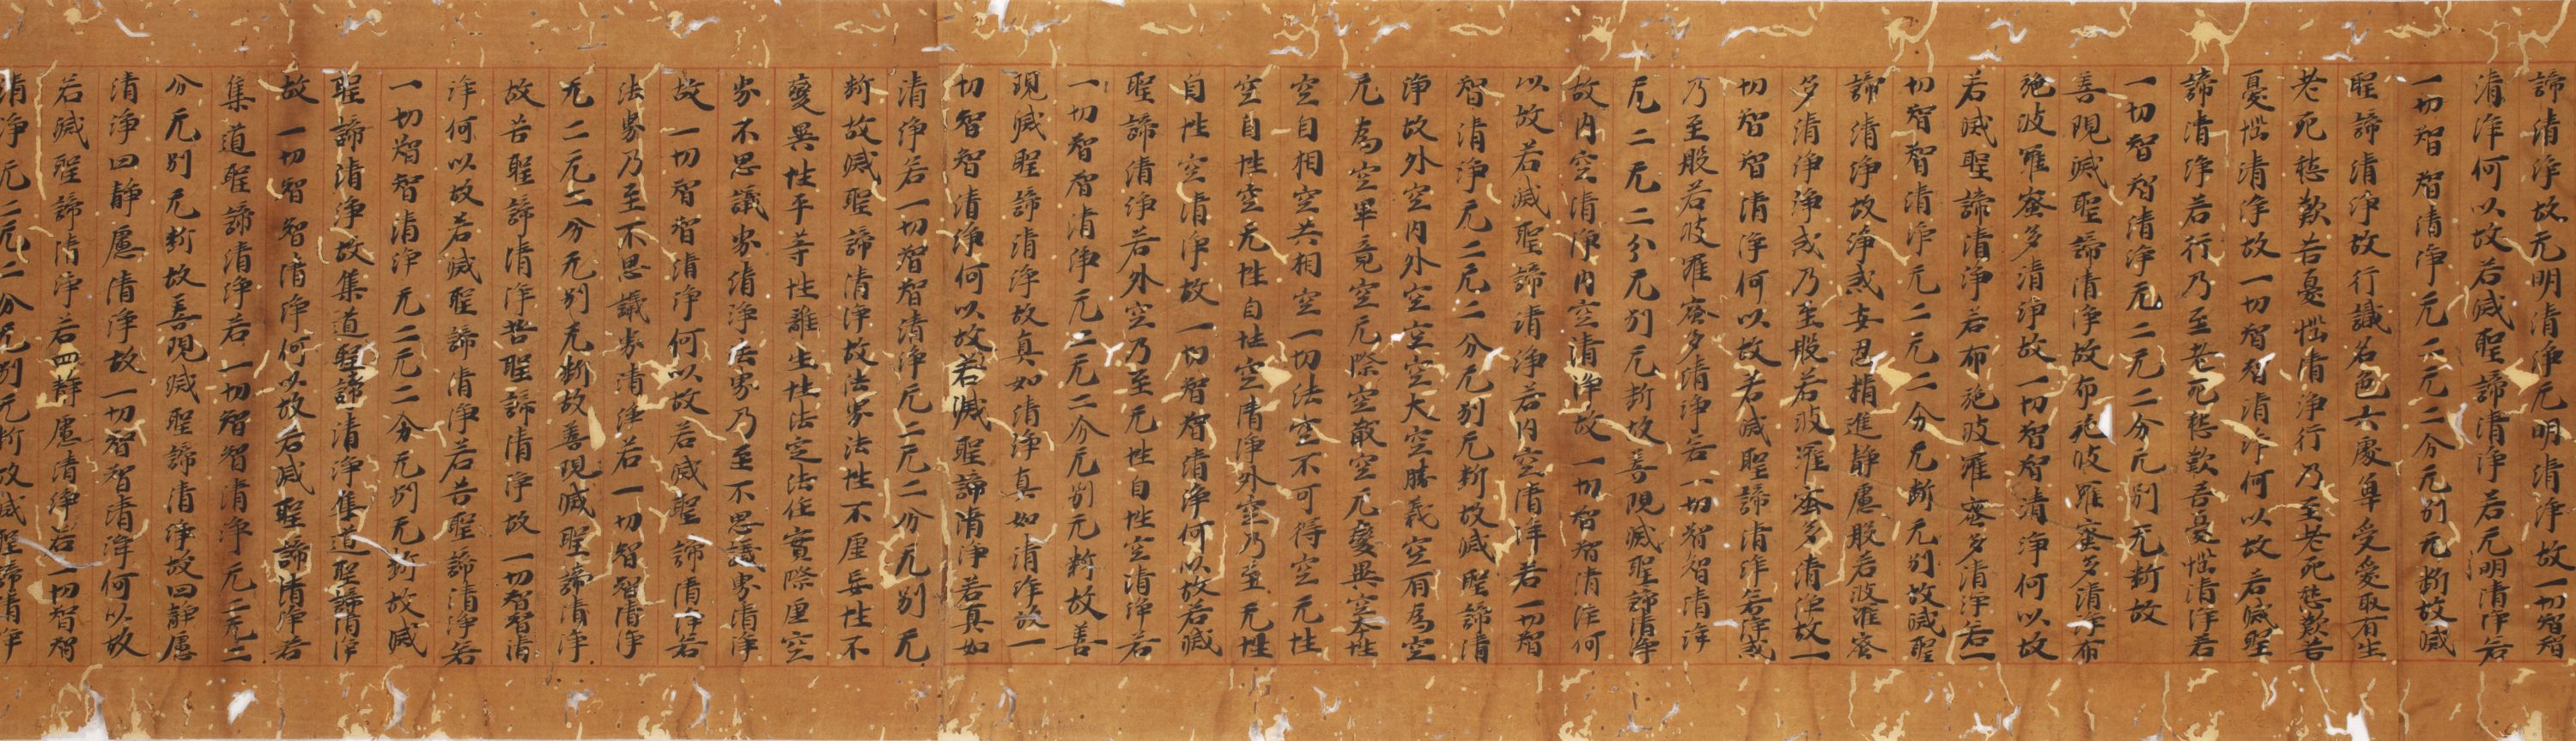 諦清淨故无明清淨无明清淨故一切智智
清淨何以故若滅聖諦清淨若无明清淨若
一切智智清淨无二无二分无別无断故滅
聖諦清淨故行識名色六處觸受愛取有生
老死愁歎苦憂惱清淨行乃至老死愁歎苦
憂惱清淨故一切智智清淨何以故若滅聖
諦清淨若行乃至老死愁歎苦憂惱清淨若
一切智智清淨无二无二分无別无断故
善現滅聖諦清淨故布施波羅蜜多清淨布
施波羅蜜多清淨故一切智智清淨何以故
若滅聖諦清淨若布施波羅蜜多清淨若一
切智智清淨无二无二分无断无別故滅聖
諦清淨故淨戒安忍精進静慮般若波羅蜜
多清淨淨戒乃至般若波羅蜜多清淨故一
切智智清淨何以故若滅聖諦清淨若淨戒
乃至般若波羅蜜多清淨若一切智智清淨
无二无二分无別无断故善現滅聖諦清淨
故内空清淨内空清淨故一切智智清淨何
以故若滅聖諦清淨若内空清淨若一切智
智清淨无二无二分无別无断故滅聖諦清
淨故外空内外空空空大空勝義空有為空
无為空畢竟空无際空散空无變異空本性
空自相空共相空一切法空不可得空无性
空自性空无性自性空清淨外空乃至无性
自性空清淨故一切智智清淨何以故若滅
聖諦清淨若外空乃至无性自性空清淨若
一切智智清淨无二无二分无別无断故善
現滅聖諦清淨故真如清淨真如清淨故一
切智智清淨何以故若滅聖諦清淨若真如
清淨若一切智智清淨无二无二分无別无
断故滅聖諦清淨故法界法性不虚妄性不
變異性平等性離生性法定法住實際虚空
界不思議界清淨法界乃至不思議界清淨
故一切智智清淨何以故若滅聖諦清淨若
法界乃至不思議界清淨若一切智智清淨
无二无二分无別无断故善現滅聖諦清淨
故苦聖諦清淨苦聖諦清淨故一切智智清
淨何以故若滅聖諦清淨若苦聖諦清淨若
一切智智清淨无二无二分无別无断故滅
聖諦清淨故集道聖諦清淨集道聖諦清淨
故一切智智清淨何以故若滅聖諦清淨若
集道聖諦清淨若一切智智清淨无二无二
分无別无断故善現滅聖諦清淨故四静慮
清淨四静慮清淨故一切智智清淨何以故
若滅聖諦清淨若四静慮清淨若一切智智
清淨无二无二分无別无断故滅聖諦清淨